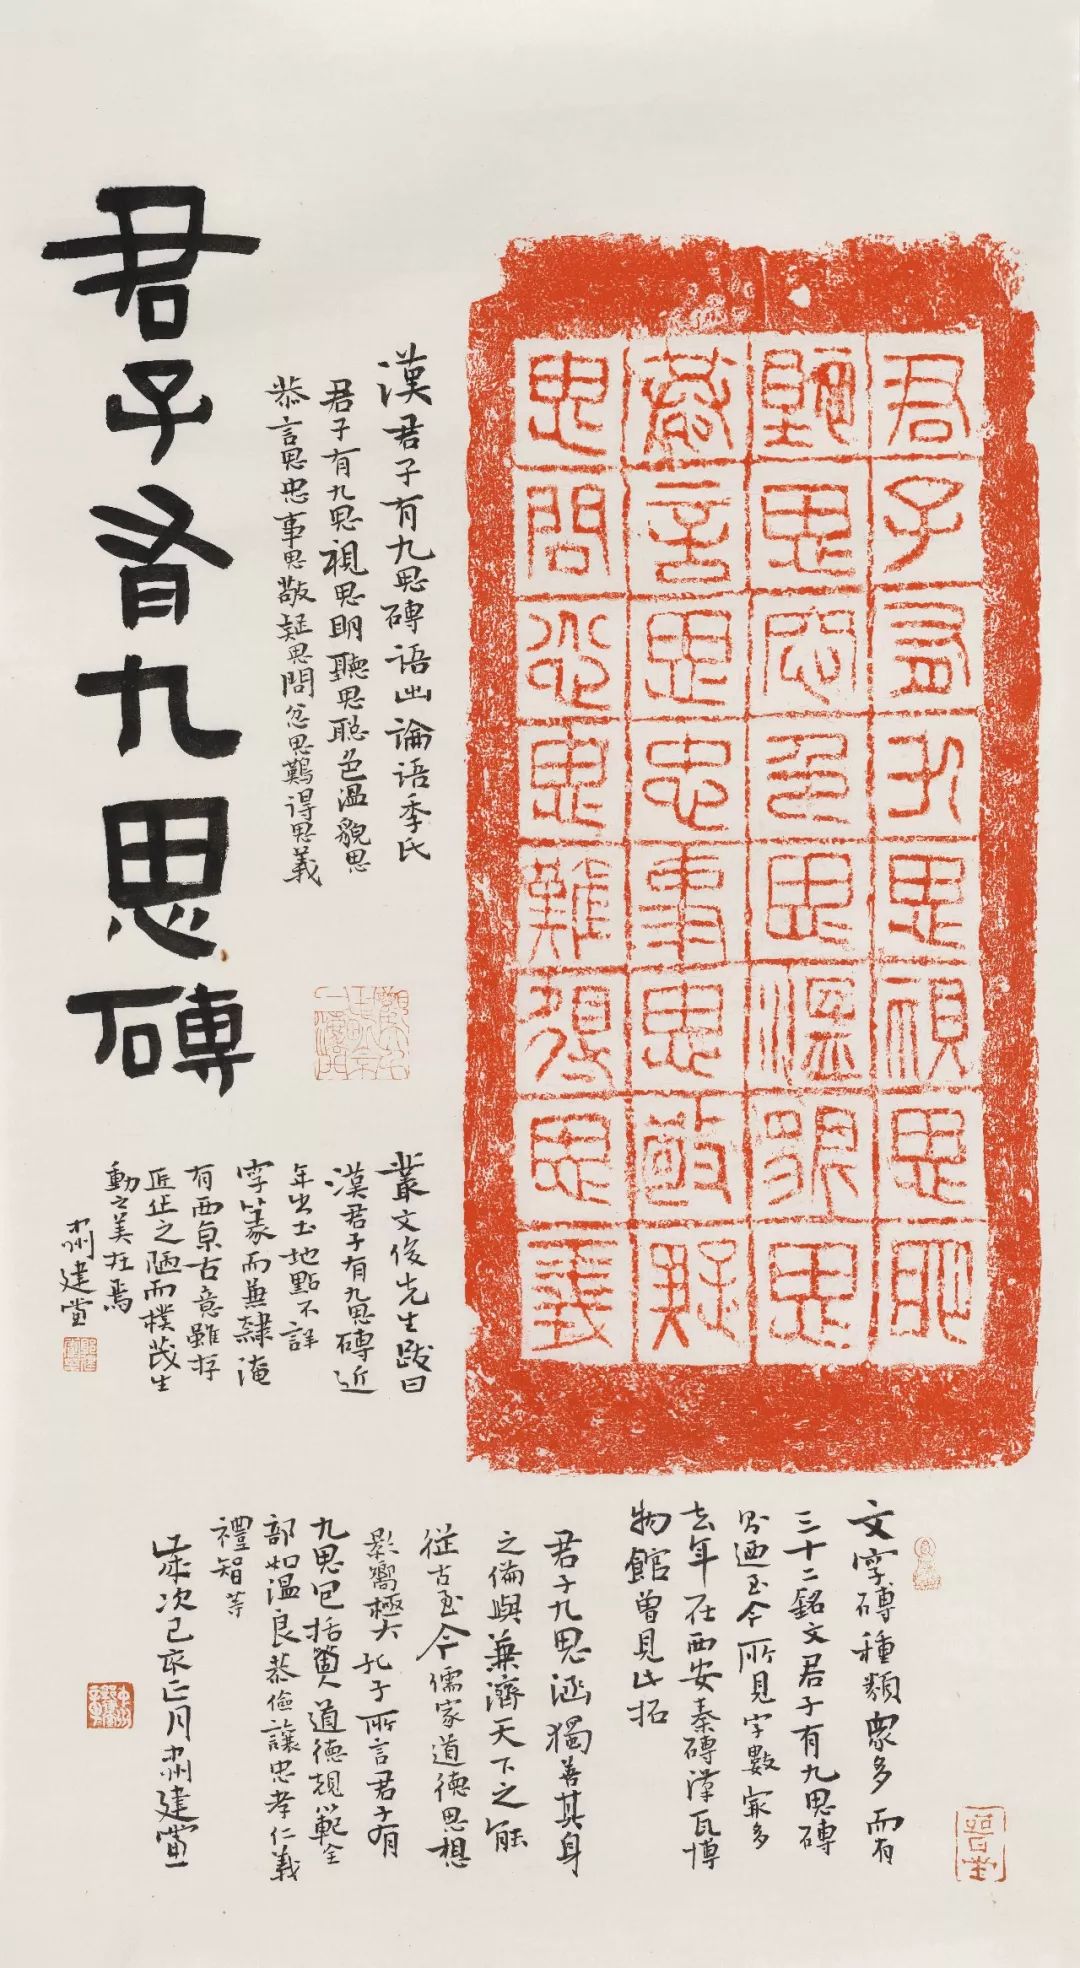 君子有九思視思明
聽思聰色思溫貌思
恭言思忠事思敬疑
思問忿思難得思義
漢君子有九思磚语出論语季氏
君子有九思視思明聽思聪色溫貌思
恭言思忠事思敬疑思問忿思難得思義
君子有九思磚
叢文俊先生跋曰
漢君子有九思磚近
年出土地點不詳
字篆而兼隸淹
有西京古意雖
匠之陋而樸茂生
動之美在焉
建黨
文字磚種類眾多而有
三十二銘文君子有九思磚
迺至今所見字數最多
去年在西安秦磚漢瓦博
物館曾見此拓
君子九思涵獨善其身
之倫與兼濟天下之能
從古至今儒家道德思想
影響極大孔子所言君子有
九思包括個人道德規範全
部如溫良恭儉讓忠孝仁義
禮智等
歲次己亥正月建黨